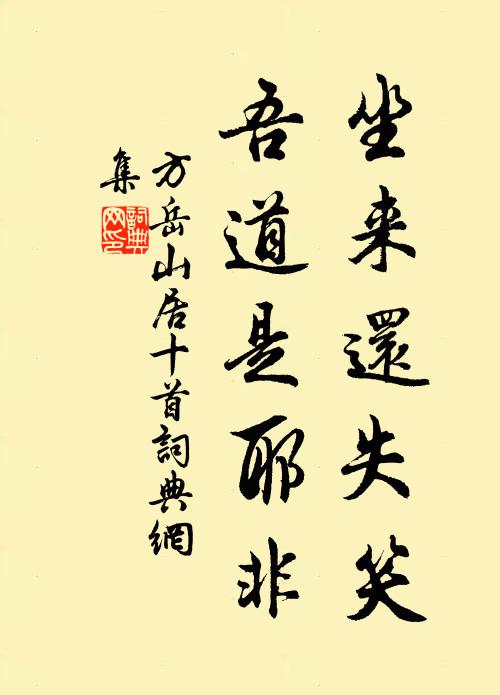 坐来還失笑
吾道是耶非
方岳山居十首詞典網
集
詞典网印